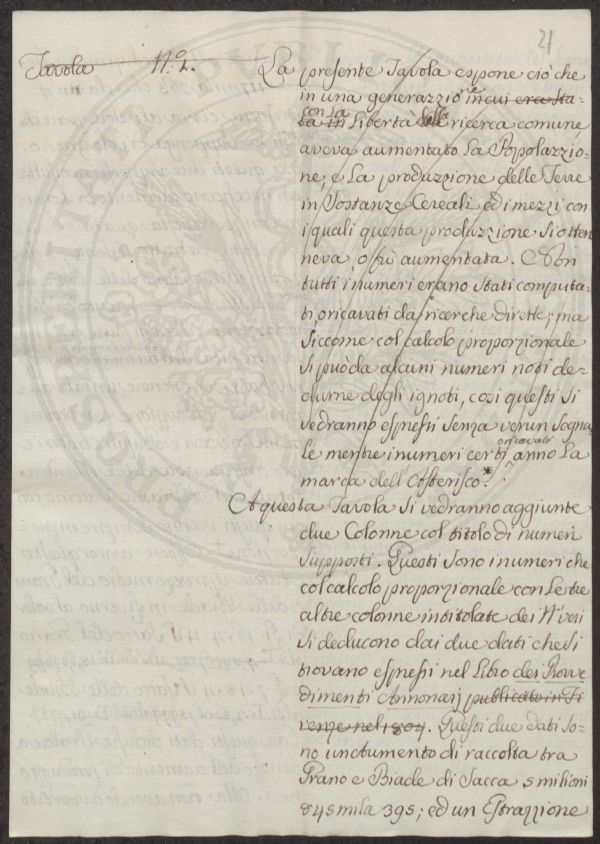 21
Tavola N.º 2. La presente Tavola espone ciò che
in una generazzione in cui era sta-
ta in con la Libertà della ricerca comune
aveva aumentato La Popolazzio-
ne, e La produzzione delle Terre
in Sostanze Cereali ed i mezzi con
i quali questa produzzione si otten
neva o più aumentata. Non
tutti i numeri erano stati computa-
ti o ricavati da ricerche dirette; ma
siccome col calcolo proporzionale
si può da alcuni numeri noti de-
dume degli ignoti, cosi questi si
vedranno espressi senza verun segna
le mentre i numeri certi o ricavati anno La
marca dell'Osterisco*.
A questa Tavola si vedranno aggiunte
due Colonne col titolo di numeri
supposti. Questi sono i numeri che
col calcolo proporzionale con Le tre
altre colonne intitolate dei N.i veri
si deducono dai due dati che si
trovano espressi nel Libro dei Provve
dimenti Annonarj publicato in Fi
renze nel 1804. Questi due dati so-
no un aumento di raccolta tra
Grano e Biade di Sacca 5 milioni
845 mila 395; ed un Estrazzione